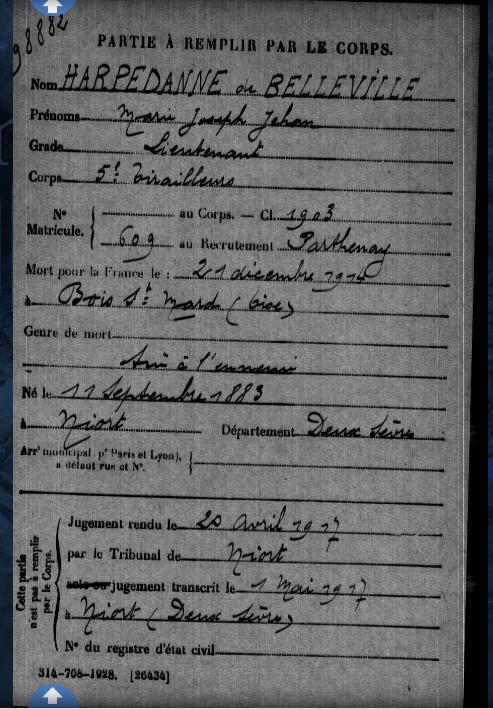 98882
PARTIE À REMPLIR PAR LE CORPS.
Nom HARPEDANNE de BELLEVILLE
Prénoms Marie Joseph Jehan
Grade Lieutenant
Corps 5e Tirailleurs
No Matricule. { au Corps. — Cl. 1903
609 au Recrutement Parthenay
Mort pour la France le : 21 décembre 1914
à Bois St Mard (Oise)
Genre de mort
Tué à l'ennemi
Né le 11 Septembre 1883
à Niort Département Deux Sèvres
Arrt municipal (pr Paris et Lyon), à défaut rue et No. {
Cette partie n'est pas à remplir par le Corps.
Jugement rendu le 20 avril 1917
par le Tribunal de Niort
acte ou jugement transcrit le 1 Mai 1917
à Niort (Deux Sèvres)
No du registre d'état civil
314-708-1928. [26434]